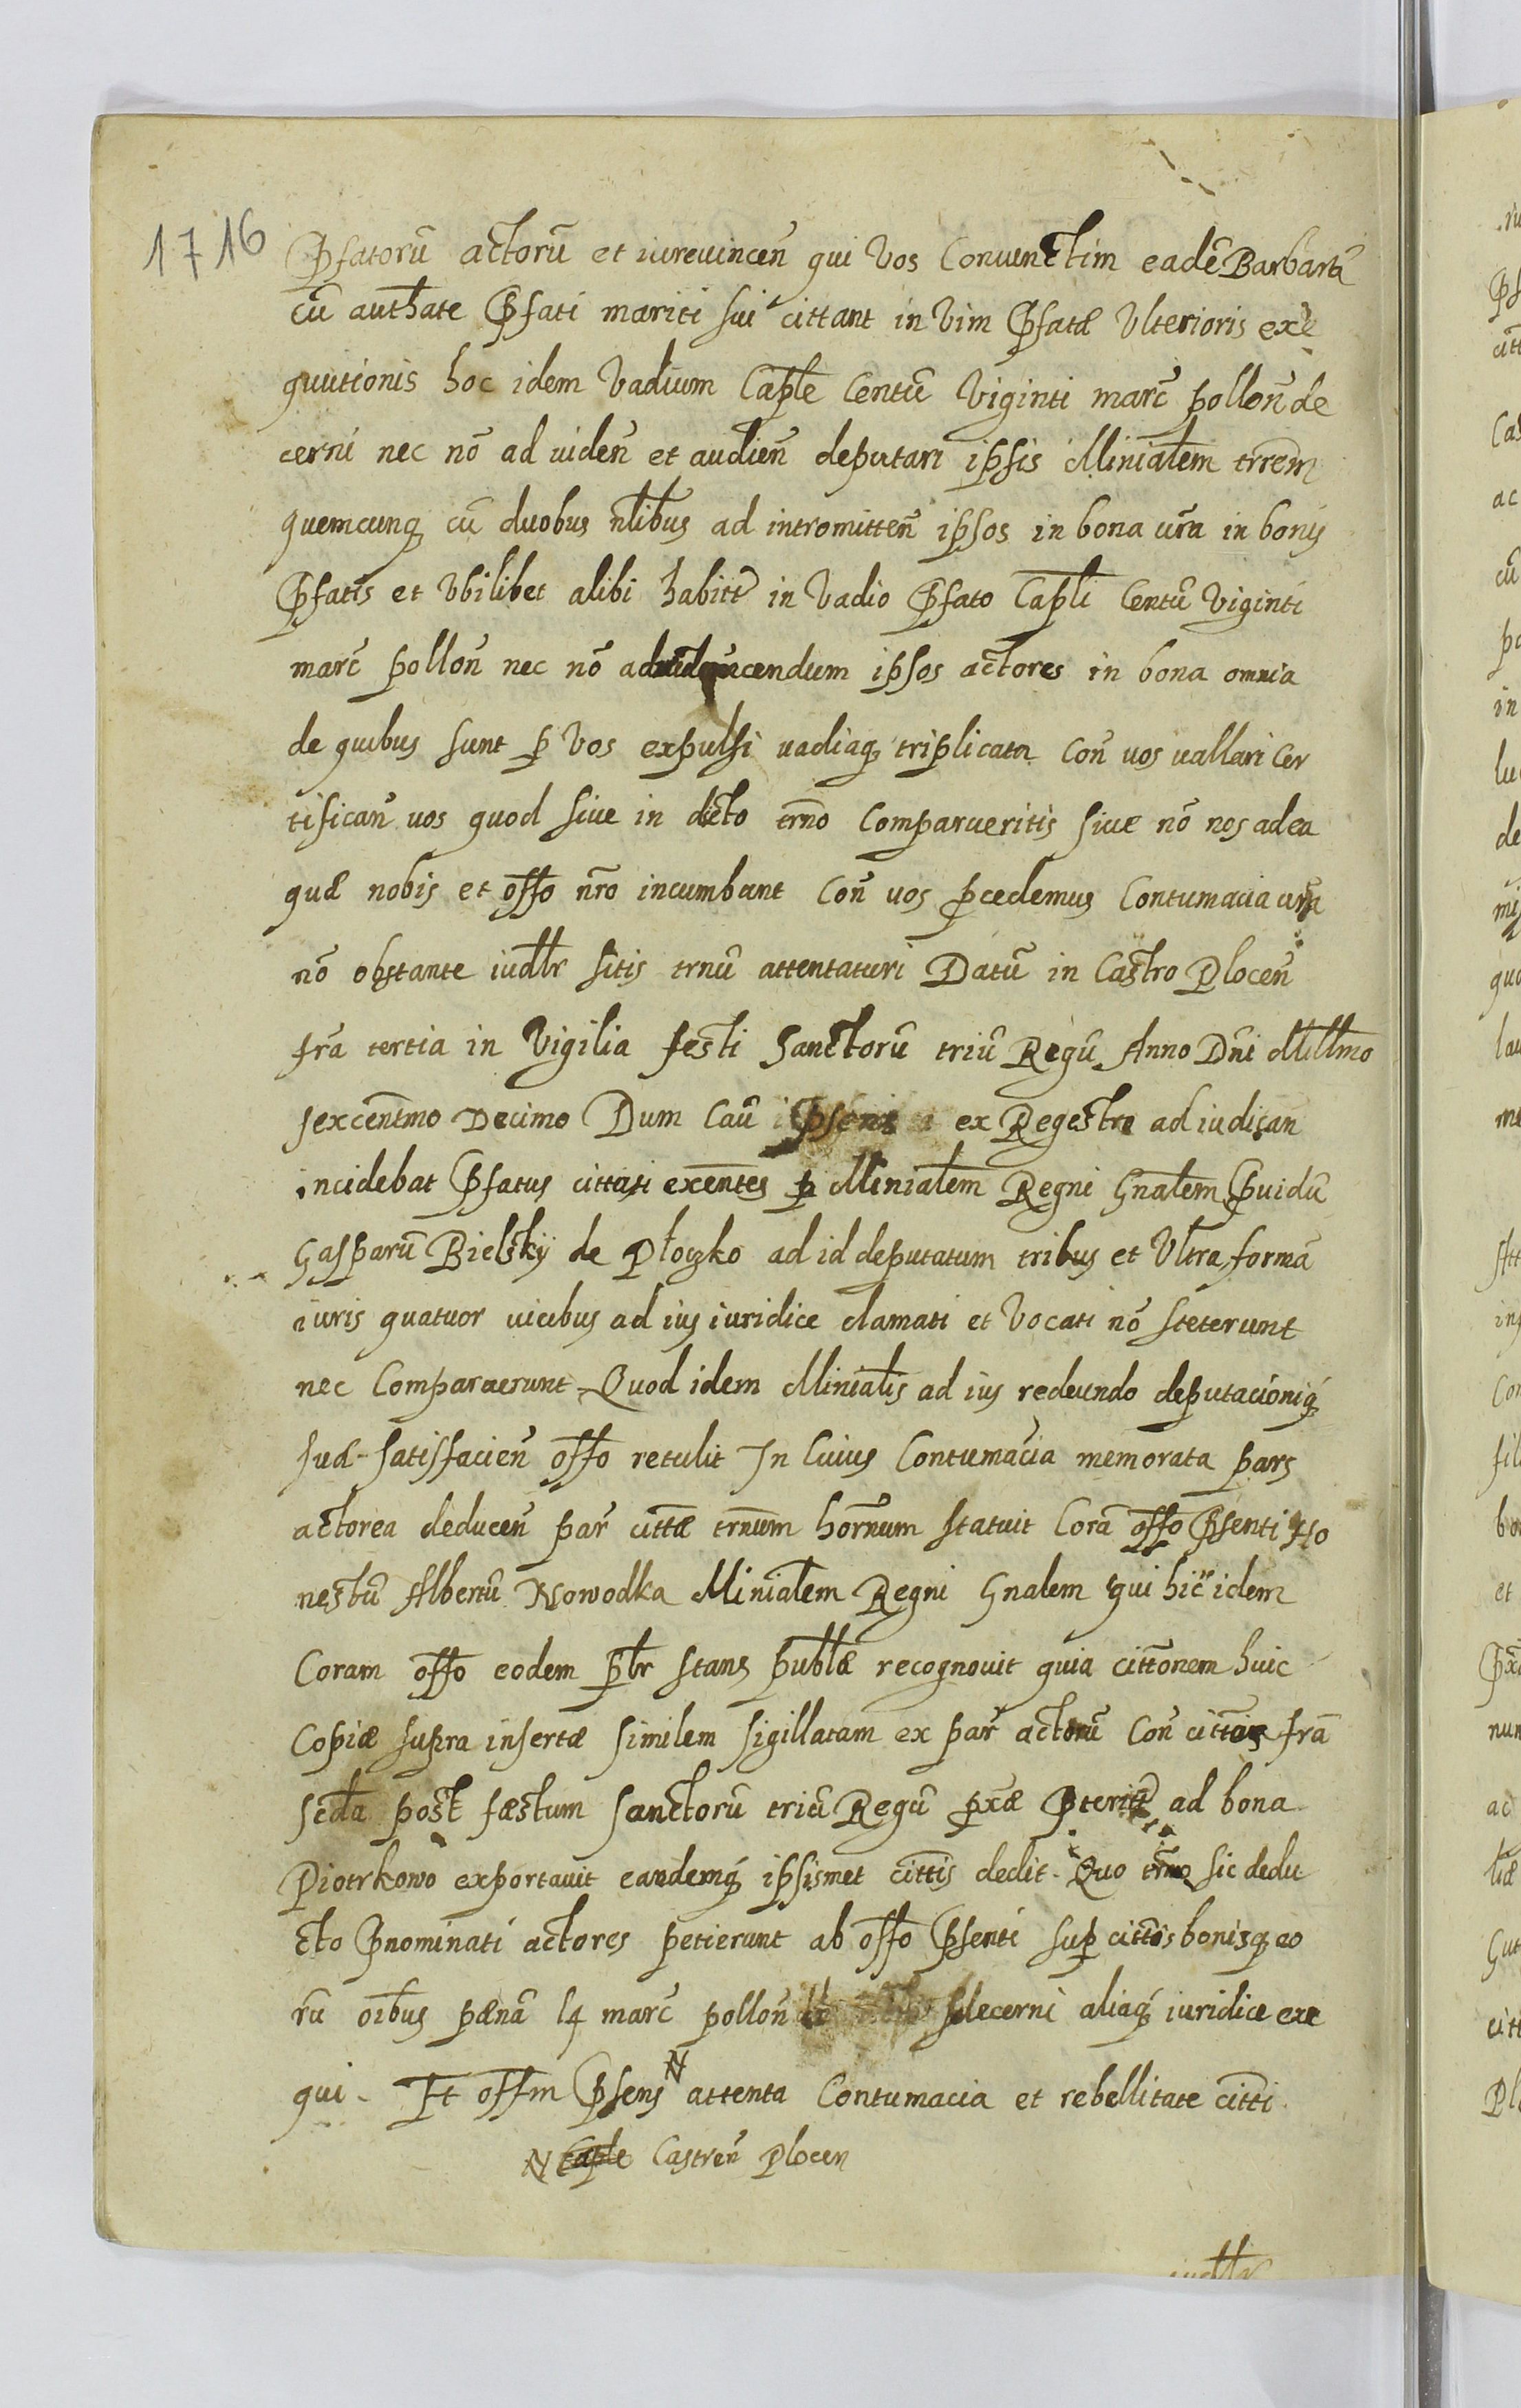 1716
Pfatorū actorū et iurevincen̄ qui Vos Coniunctim eadē Barbara
cū authate Pfati mariti sui cittant in Vim Pfatæ Ulterioris exe
quutionis hoc idem Vadium Caplē Centū Viginti marc̄ pollon̄ de
cerni nec nō ad viden̄ et audien̄ deputari ipsis Ministalem trrem
quemcunq cū duobus nlibus ad intromitten̄ ipsos in bona vrā in bonis
Pfatis et Ubilibet alibi habitt in Vadio Pfato Caplī Centū Viginti
marc̄ pollon̄ nec nō ad inducendum ipsos actores in bona omnia
de quibus sunt p Vos expulsi vadiaq triplicata Con̄ vos vallari Cer
tifican̄ vos quod sive in dicto trno Comparueritis sive nō nos ad ea
quæ nobis et offo nro incumbant Con̄ vos pcedemus Contumacia vrā
nō obstante iudlr sitis trnū attentaturi Datū in Castro Plocen̄
frā tertia in Vigilia festi Sanctorū triū Regū Anno Dni Millmo
sexcentmo Decimo Dum Cau Psens ex Regestro ad iudican
incidebat Pfatus cittati exentes p Minialem Regni Gnalem Pvidū
Gasparū Bielskÿ de Płoczko ad id deputatum tribus et Ultra formā
iuris quatuor vicibus ad ius iuridice clamati et Vocati nō steterunt
nec Comparuerunt Quod idem Minialis ad ius redeundo deputacioniq
suæ satisfacien̄ offo retulit In Cuius Contumacia memorata pars
actorea deducen̄ par cittæ trnum hornum statuit Corā offo Psenti Ho
nestū Albertū Nowodka Minialem Regni Gnalem qui hic idem
Coram offo eodem plr stans publæ recognovit quia cittonem huic
Copiæ supra insertæ similem sigillatam ex par actorū Con̄ cittos frā
scda post fæstum sanctorū triū Regū pxæ Pteritt ad bona
Piotrkowo exportavit eandemq ipsismet cittis dedit Quo trno sic dedu
cto Pnominati actores petierunt ab offo Psenti sup cittis bonisq eo
rū oibus pænā 14 marc̄ pollon decerni aliaq iuridice exe
qui. Et offm Psens N attenta Contumacia et rebellitate citti
N Caple Castren̄ Plocen
iudlr